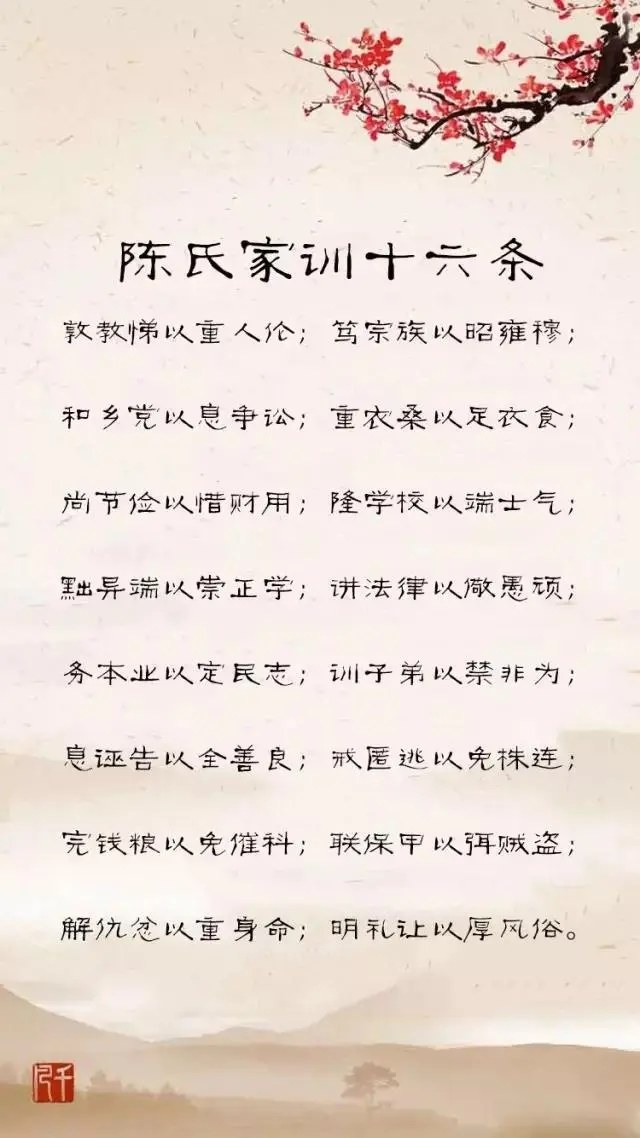 陈氏家训十六条
敦教悌以重人伦；笃宗族以昭雍穆；
和乡党以息争讼；重农桑以足衣食；
尚节俭以惜财用；隆学校以端士气；
黜异端以崇正学；讲法律以儆愚顽；
务本业以定民志；训子弟以禁非为；
息诬告以全善良；戒匿逃以免株连；
完钱粮以免催科；联保甲以弭贼盗；
解仇忿以重身命；明礼让以厚风俗。